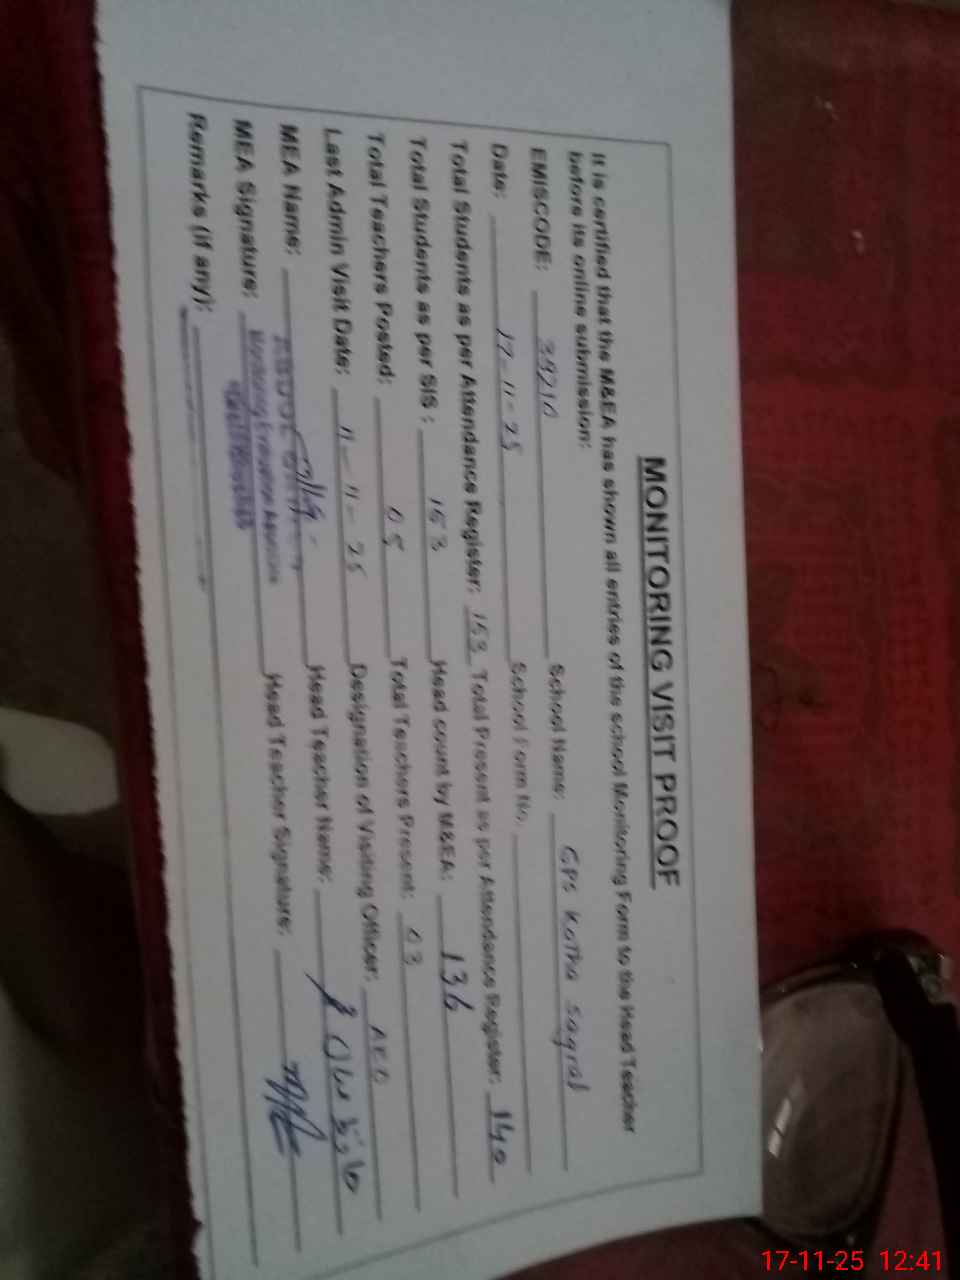 MONITORING VISIT PROOF
It is certified that the M&EA has shown all entries of the school Monitoring Form to the Head Teacher
before its online submission:
EMISCODE: 39210 School Name: GPS Kotha Sagral
Date: 17-11-25 School Form No.
Total Students as per Attendance Register: 153 Total Present as per Attendence Register: 140
Total Students as per SIS: 153 Head count by M&EA: 136
Total Teachers Posted: 05 Total Teachers Present: 03
Last Admin Visit Date: 11-11-25 Designation of Visiting Officer: AEO
MEA Name: Head Teacher Name:
MEA Signature: Head Teacher Signature:
Remarks (if any):
17-11-25 12:41